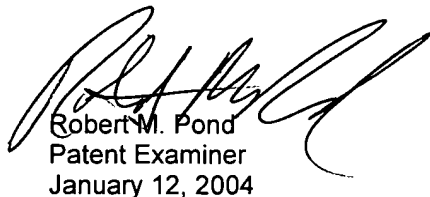 Robert M. Pond
Patent Examiner
January 12, 2004